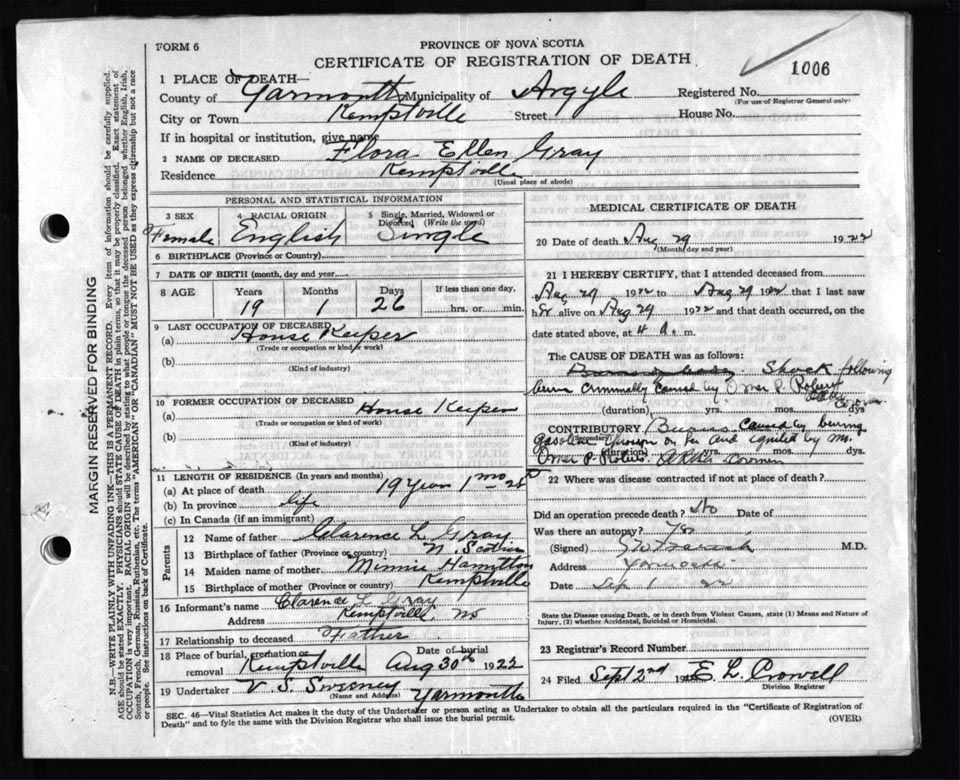 FORM 6
PROVINCE OF NOVA SCOTIA
CERTIFICATE OF REGISTRATION OF DEATH
1006
1 PLACE OF DEATH—
County of Yarmouth Municipality of Argyle Registered No.
(For use of Registrar General only)
City or Town Kemptville Street House No.
If in hospital or institution, give name
2 NAME OF DECEASED Flora Ellen Gray
Residence Kemptville
(Usual place of abode)
PERSONAL AND STATISTICAL INFORMATION
3 SEX 4 RACIAL ORIGIN 5 Single, Married, Widowed or Divorced (Write the word)
Female English Single
6 BIRTHPLACE (Province or Country)
7 DATE OF BIRTH (month, day and year)
8 AGE Years Months Days If less than one day,
19 1 26 hrs. or min.
9 LAST OCCUPATION OF DECEASED
(a) House Keeper
(Trade or occupation or kind of work)
(b)
(Kind of industry)
10 FORMER OCCUPATION OF DECEASED
(a) House Keeper
(Trade or occupation or kind of work)
(b)
(Kind of industry)
11 LENGTH OF RESIDENCE (In years and months)
(a) At place of death 19 Years 1 mo
(b) In province life
(c) In Canada (if an immigrant)
Parents
12 Name of father Clarence L. Gray
13 Birthplace of father (Province or country) N. Scotia
14 Maiden name of mother Minnie Hamilton
15 Birthplace of mother (Province or country) Kemptville
16 Informant's name Clarence L. Gray
Address Kemptville, NS
17 Relationship to deceased Father
18 Place of burial, cremation or removal Kemptville Date of burial Aug 30th 1922
19 Undertaker V. S. Sweeney Yarmouth
(Name and Address)
MEDICAL CERTIFICATE OF DEATH
20 Date of death Aug 29 1922
(Month, day and year)
21 I HEREBY CERTIFY, that I attended deceased from
Aug 29 1922 to Aug 29 1922 that I last saw
her alive on Aug 29 1922 and that death occurred, on
date stated above, at 4 a. m.
The CAUSE OF DEATH was as follows:
Shock following
burn criminally caused by Omer P. Roberts
(duration) yrs. mos. dys
CONTRIBUTORY Burns caused by burning
(Secondary)
gasoline thrown on her and ignited by Mr.
(duration) yrs. mos. dys.
Omer P. Roberts
22 Where was disease contracted if not at place of death?
Did an operation precede death? No Date of
Was there an autopsy?
(Signed) M.D.
Address Yarmouth
Date Sep 1 22
State the Disease causing Death, or in death from Violent Causes, state (1) Means and Nature of Injury, and (2) whether Accidental, Suicidal or Homicidal.
23 Registrar's Record Number
24 Filed Sept 2nd 1922 E. L. Crowell
Division Registrar
SEC. 46—Vital Statistics Act makes it the duty of the Undertaker or person acting as Undertaker to obtain all the particulars required in the "Certificate of Registration of
Death" and to fyle the same with the Division Registrar who shall issue the burial permit. (OVER)
MARGIN RESERVED FOR BINDING
N.B.—WRITE PLAINLY WITH UNFADING INK—THIS IS A PERMANENT RECORD. Every item of information should be carefully supplied.
AGE should be stated EXACTLY. PHYSICIANS should STATE CAUSE OF DEATH in plain terms, so that it may be properly classified. Exact statement of
OCCUPATION is very important. RACIAL ORIGIN will be described by stating to what people or tongue the deceased person belonged whether English, Irish,
Scotch, French, German, Russian, Ruthenian, etc. The terms "AMERICAN" OR "CANADIAN" MUST NOT BE USED as they express citizenship but not a race
or people. See instructions on back of Certificate.